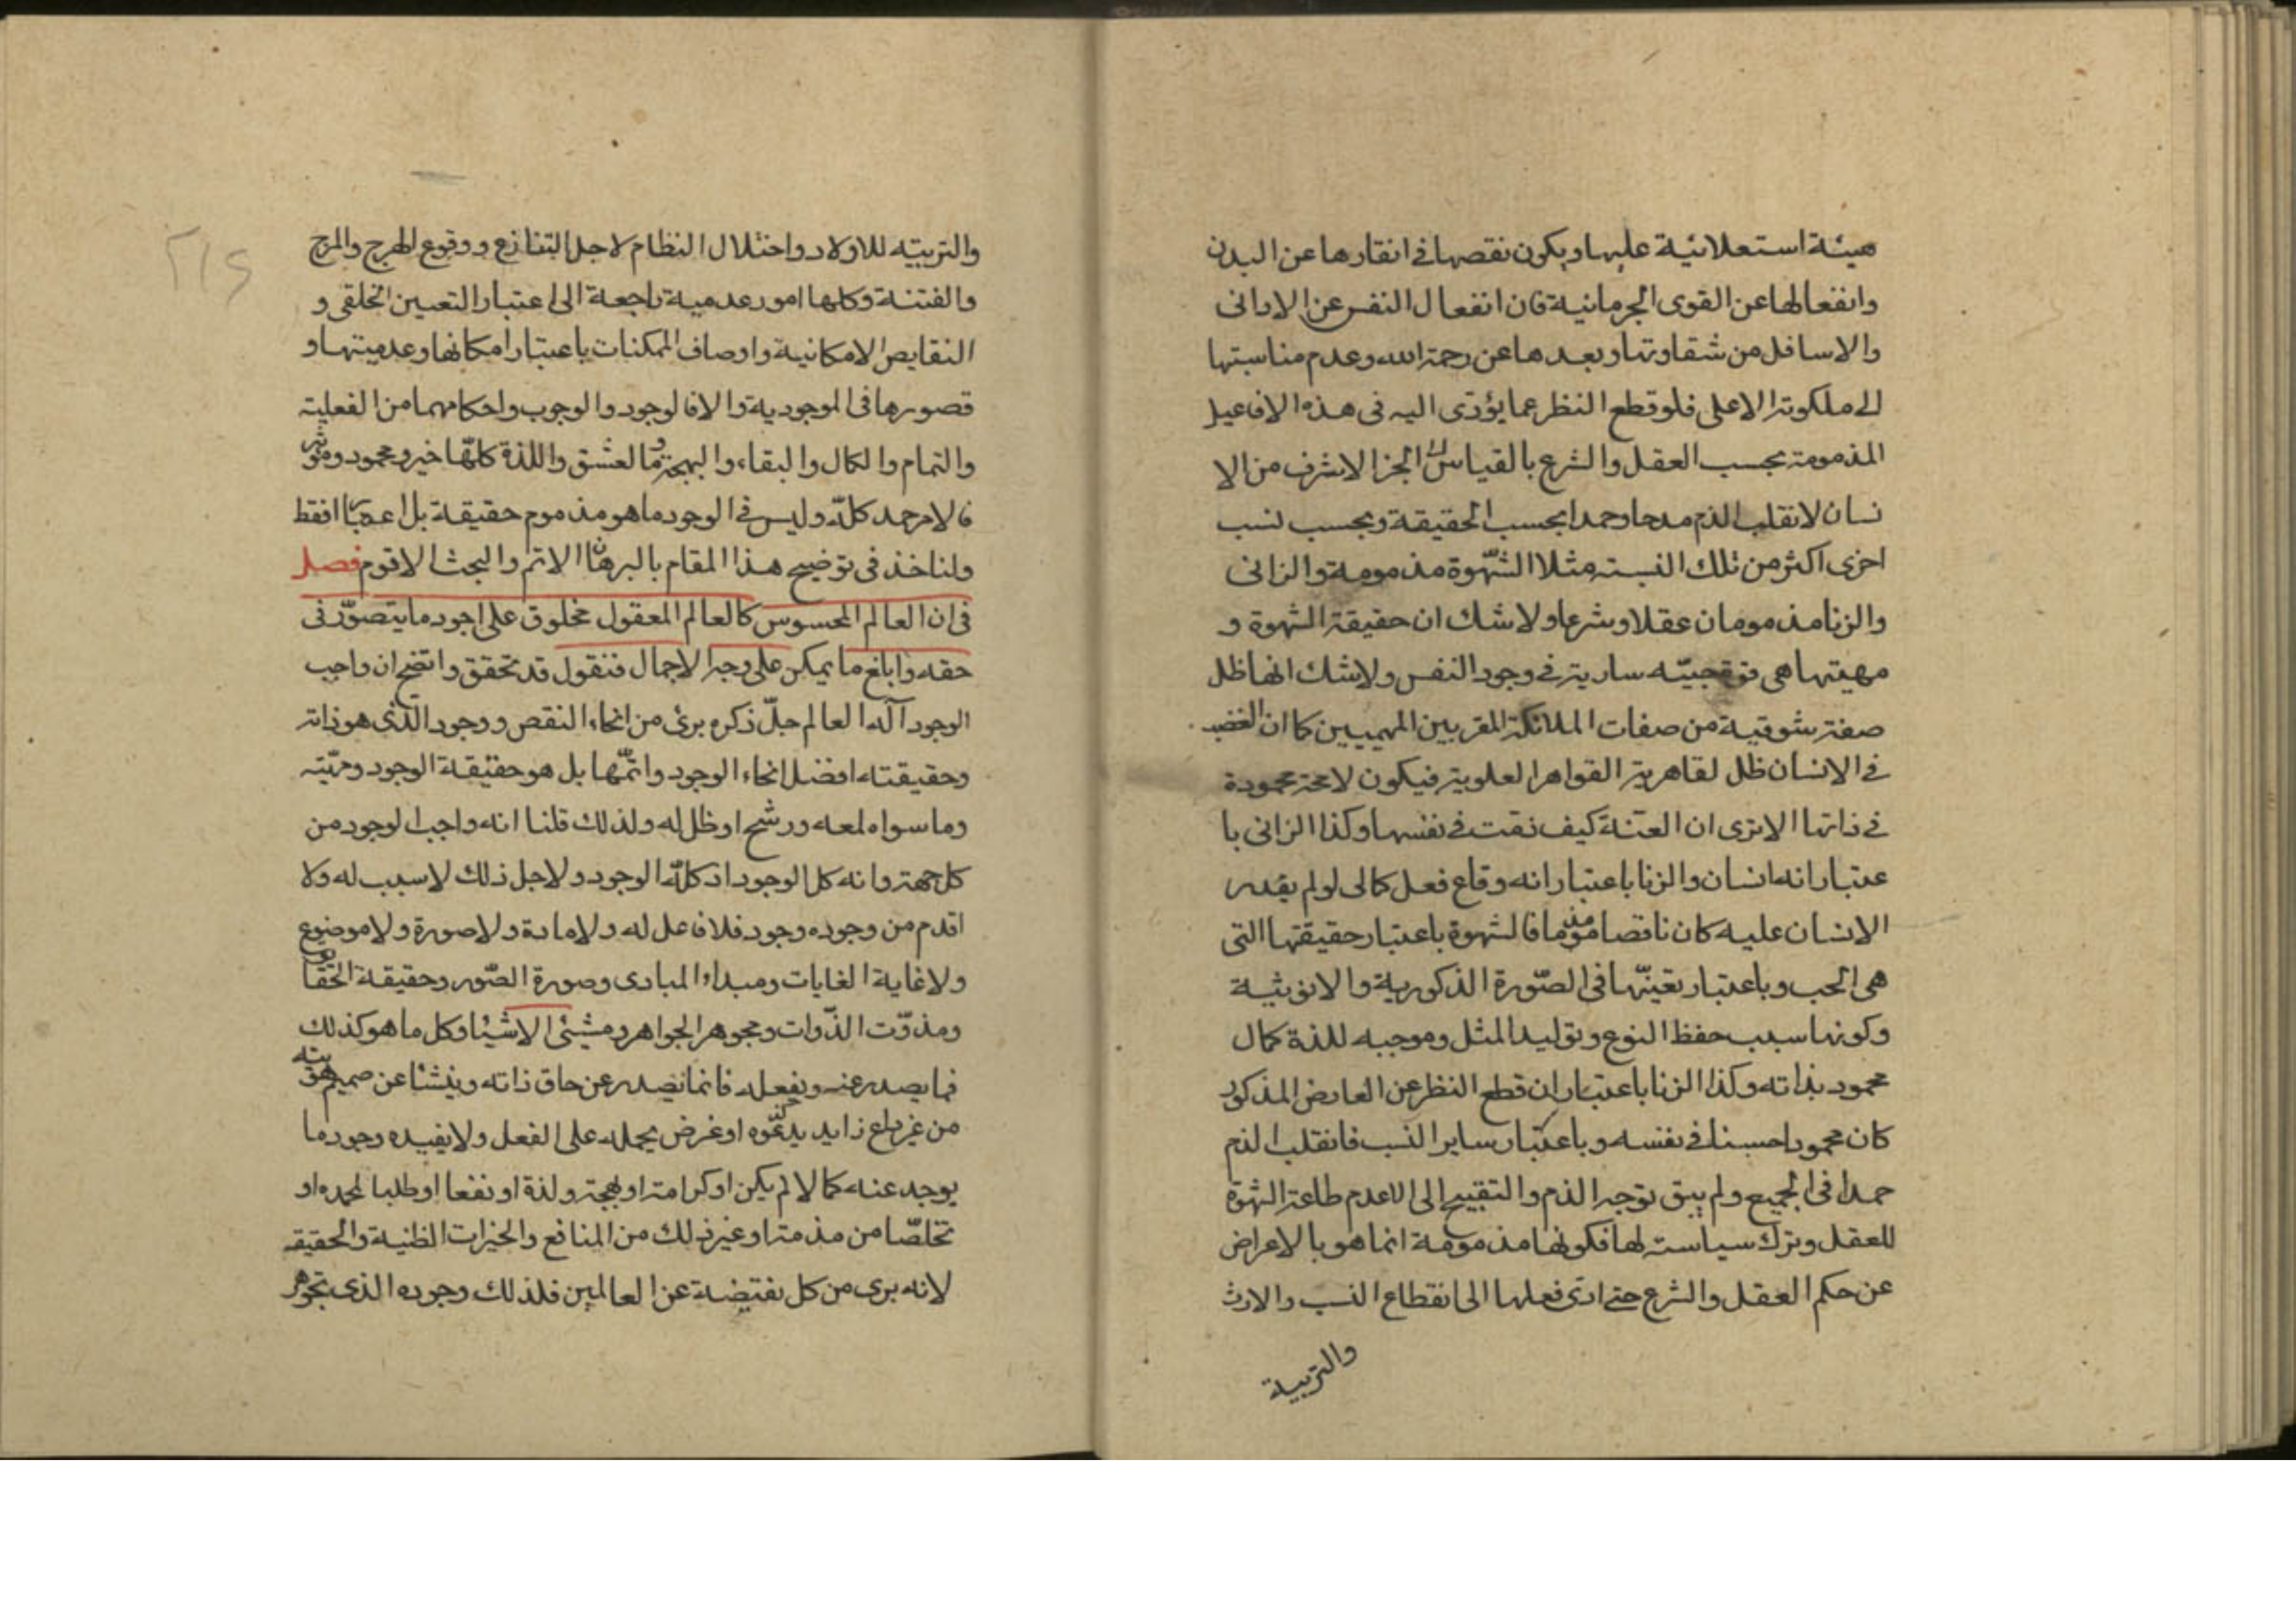 هيئة استعلائية عليها ويكون نقصها في انقارها عن البدن
وانفعالها عن القوى الجرمانية فان انفعال النفس عن الادانى
والاسافل من شقاوتها وبعدها عن رحمة الله وعدم مناسبتها
الى ملكوته الاعلى فلو قطع النظر عما يؤدى اليه فى هذه الافاعيل
المذمومة بحسب العقل والشرع بالقياس الى الجزا الاشرف من الا
نسان لانقلب الذم مدحا وحمدا بحسب الحقيقة وبحسب نسب
اخرى اكثر من تلك النسبة مثلا الشهوة مذمومة والزانى
والزنا مذمومان عقلا وشرعا ولا شك ان حقيقة الشهوة و
مهيتها هى قوة حبيّه سارية فى وجود النفس ولا شك انها ظل
صفة شوقية من صفات الملائكة المقربين المهيمين كما ان الغضب
فى الانسان ظل لقاهرية القواهر العلوية فيكون لا محة محمودة
فى ذاتها الا ترى ان العنّة كيف ذمت فى نفسها وكذا الزانى با
عتبار انه انسان والزنا باعتبار انه وقاع فعل كمالى لو لم يقدر
الانسان عليه كان ناقصا مذموما فالشهوة باعتبار حقيقتها التى
هى الحب وباعتبار تعيّنها فى الصّورة الذكورية والانوثية
وكونها سبب حفظ النوع وتوليد المثل وموجبه للذة كمال
محمود بذاته وكذا الزنا باعتبار ان قطع النظر عن العارض المذكور
كان محمودا حسنا فى نفسه وباعتبار ساير النسب فانقلب الذم
حمدا فى الجميع ولم يبق توجه الذم والتقبيح الى الا عدم طاعة الشهوة
للعقل وترك سياسته لها فكونها مذمومة انما هو بالاعراض
عن حكم العقل والشرع حتى ادى فعلها الى انقطاع النسب والارث
والتربية
٢١٥
والتربيته للاولاد واختلال النظام لاجل التنازع ووقوع الهرج والمرج
والفتنة وكلها امور عدمية راجعة الى اعتبار التعين الخلقى و
النقايص الامكانية واوصاف الممكنات باعتبار امكانها وعدميتها و
قصورها فى الموجودية والا فالوجود والوجوب واحكامهما من الفعلية
والتمام والكمال والبقاء والبهجة والعشق واللذة كلّها خير ومحمود وموثر
فالامر حمد كلّه وليس فى الوجود ما هو مذموم حقيقة بل اعتبارا فقط
ولناخذ فى توضيح هذا المقام بالبرهان الاتم والبحث الاقوم فصل
فى ان العالم المحسوس كالعالم المعقول مخلوق على اجود ما يتصوّر فى
حقه وابلغ ما يمكن على وجه الاجمال فنقول قد تحقق واتضح ان واجب
الوجود آله العالم جلّ ذكره برئ من انحاء النقص ووجود الّذى هو ذاته
وحقيقته افضل انحاء الوجود واتمّها بل هو حقيقة الوجود ومهيّته
وما سواه لمعه ورشح او ظل له ولذلك قلنا انه واجب الوجود من
كل جهة وانه كل الوجود اذ كلّه الوجود ولاجل ذلك لا سبب له ولا
اقدم من وجوده وجود فلا فاعل له ولا مادة ولا صورة ولا موضوع
ولا غاية الغايات ومبداء المبادى وصورة الصّور وحقيقة الحقايق
ومذوّت الذّوات ومجوهر الجواهر ومشيئ الاشيا وكل ما هو كذلك
فما يصدر عنه ويفعله فانما يصدر عن حاق ذاته وينشا عن صميم هويته
من غير داع زايد يدعوه او غرض يحمله على الفعل ولا يفيده وجود ما
يوجد عنه كمالا لم يكن او كرامة او بهجة ولذة او نفعا او طلبا لمحمده او
تخلّصا من مذمة او غير ذلك من المنافع والخيرات الظنية والحقيقه
لانه برى من كل نقيضة عن العالمين فلذلك وجوده الذى تجوهر